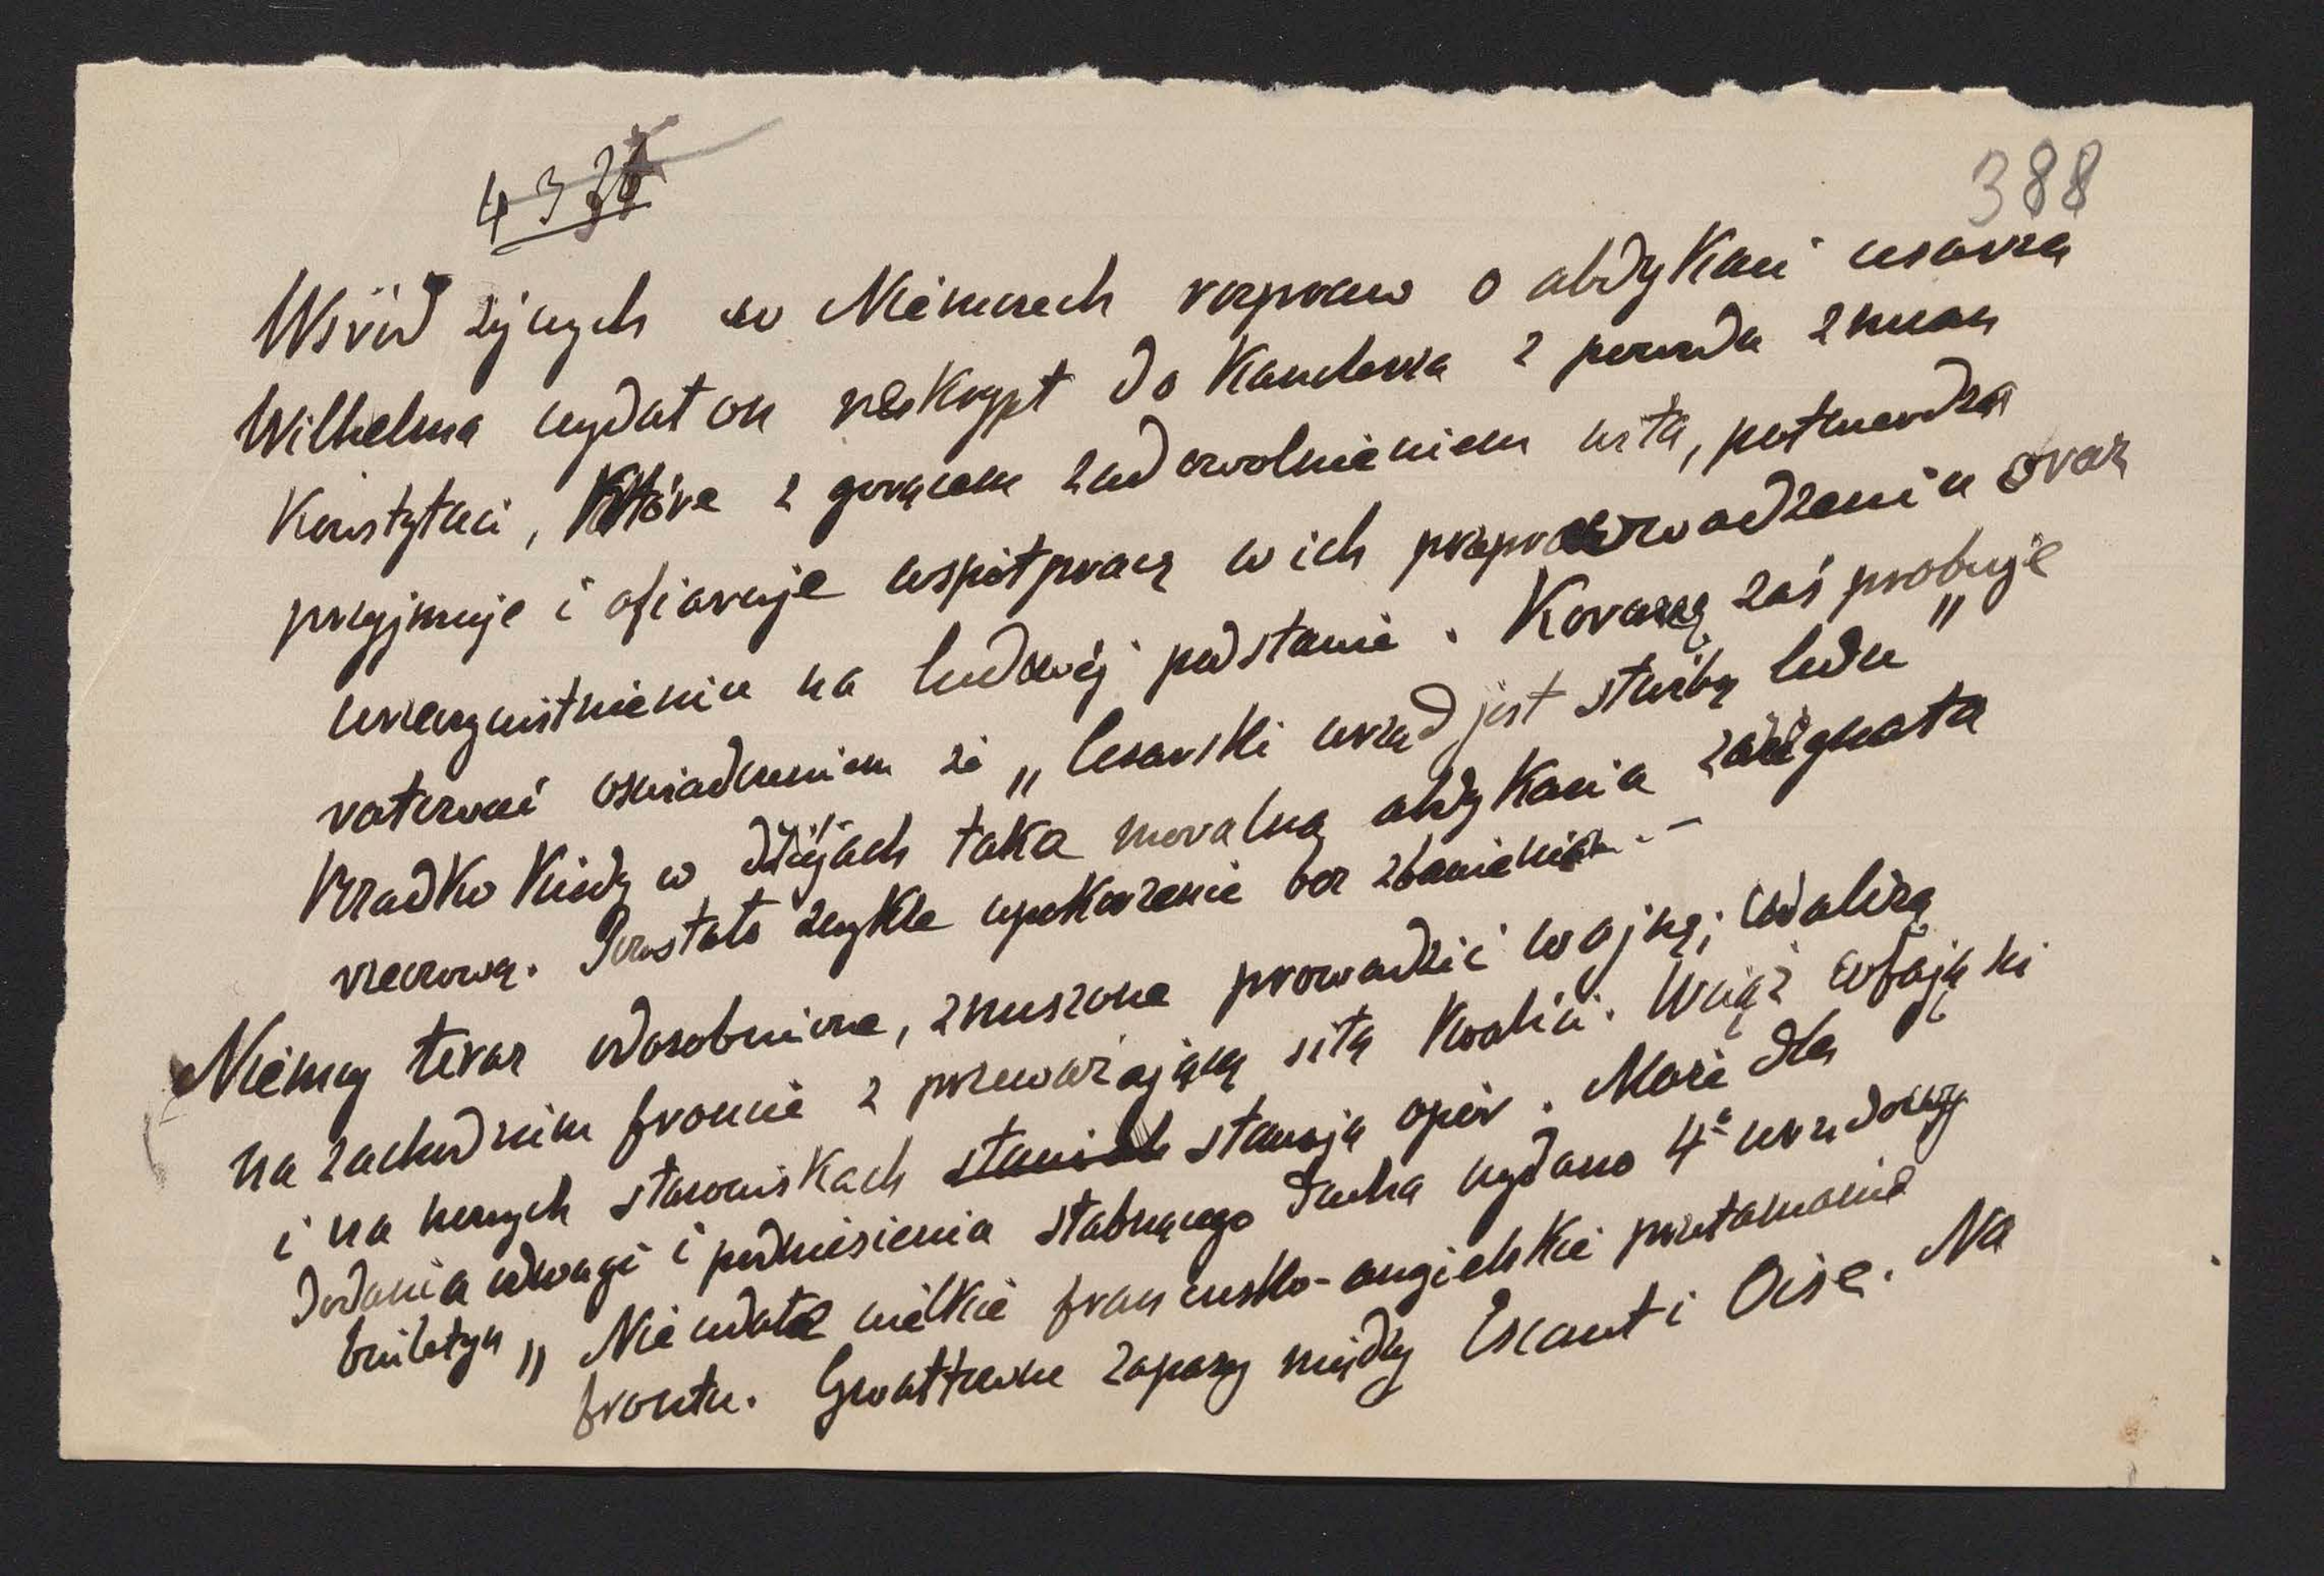 388
Wśród żywych w Niemczech rozpraw o abdykacii cesarza
Wilhelma wydał on reskrypt do Kanclerza z powodu zmian
Konstytucii, które z gorącem zadowolnieniem wita, potwierdza
przyjmuje i ofiaruje współpracę w ich przeprowadzeniu oraz
urzeczywistnieniu na ludowéj podstawie. Koronę zaś probuje
ratować oświadczeniem że „Cesarski urząd jest służbą ludu"
Rzadko kiedy w dziejach taka moralna abdykacia
rzeczową. Pozostało zwykle upokorzenie bez zbawienia. —
Niemcy teraz odosobnione, zmuszone prowadzić wojnę; walczą
na zachodnim froncie z przeważającą siłą Koalicii. Wciąż cofają się
i na nowych stanowiskach stawiają opór. Może dla
dodania odwagi i podniesienia słabnącego ducha wydano 4º urzędowy
biuletyn „Nie udałe wielkie francusko-angielskie przełamanie
frontu. Gwałtowne zapasy między Escaut i Oise. Na